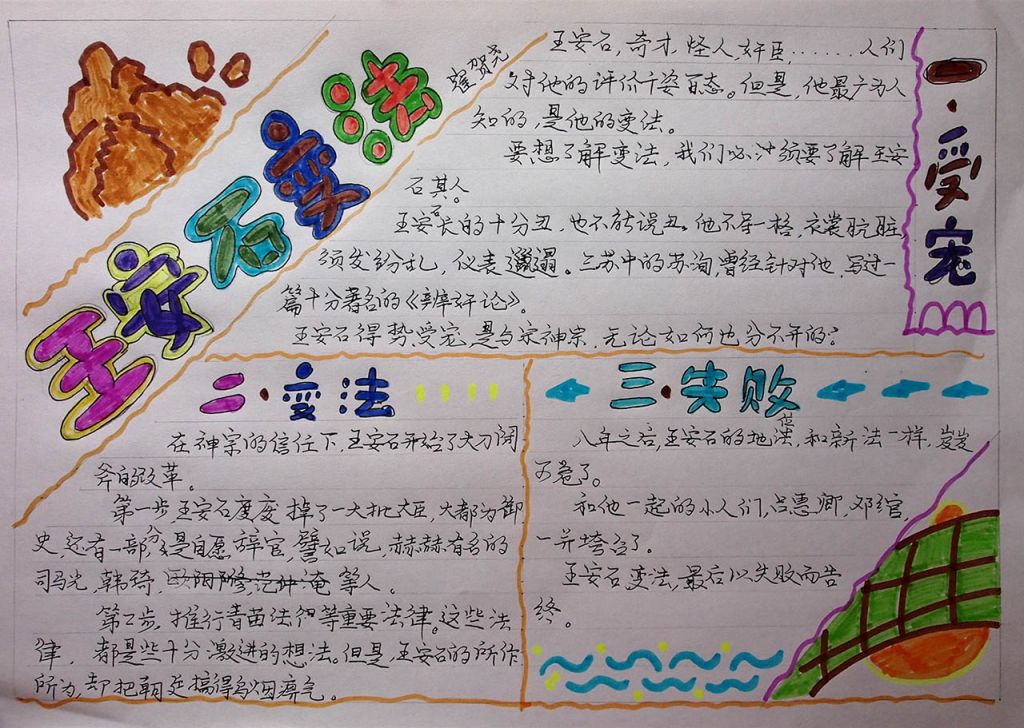 王安石变法
崔贺尧
王安石，奇才，怪人，奸臣，……人们
对他的评价千姿百态。但是，他最广为人
知的，是他的变法。
要想了解变法，我们必须要了解王安
石其人
王安石长的十分丑，也不能说丑。他不拘一格，衣裳肮脏，
须发纷乱，仪表邋遢。三苏中的苏洵，曾经针对他，写过一
篇十分著名的《辨奸论》。
王安石得势受宠，是与宋神宗，无论如何也分不开的：
一·受宠
二·变法
在神宗的信任下，王安石开始了大刀阔
斧的改革。
第一步，王安石废掉了一大批大臣，大都为御
史，还有一部分是自愿辞官，譬如说，赫赫有名的
司马光，韩琦，欧阳修，范仲淹等人。
第二步，推行青苗法等重要法律。这些法
律，都是些十分激进的想法。但是王安石的所作
所为，却把朝廷搞得乌烟瘴气。
三·失败
八年之后，王安石的地位，和新法一样，岌岌
可危了。
和他一起的小人们，吕惠卿，邓绾，
一并垮台了。
王安石变法，最后以失败而告
终。